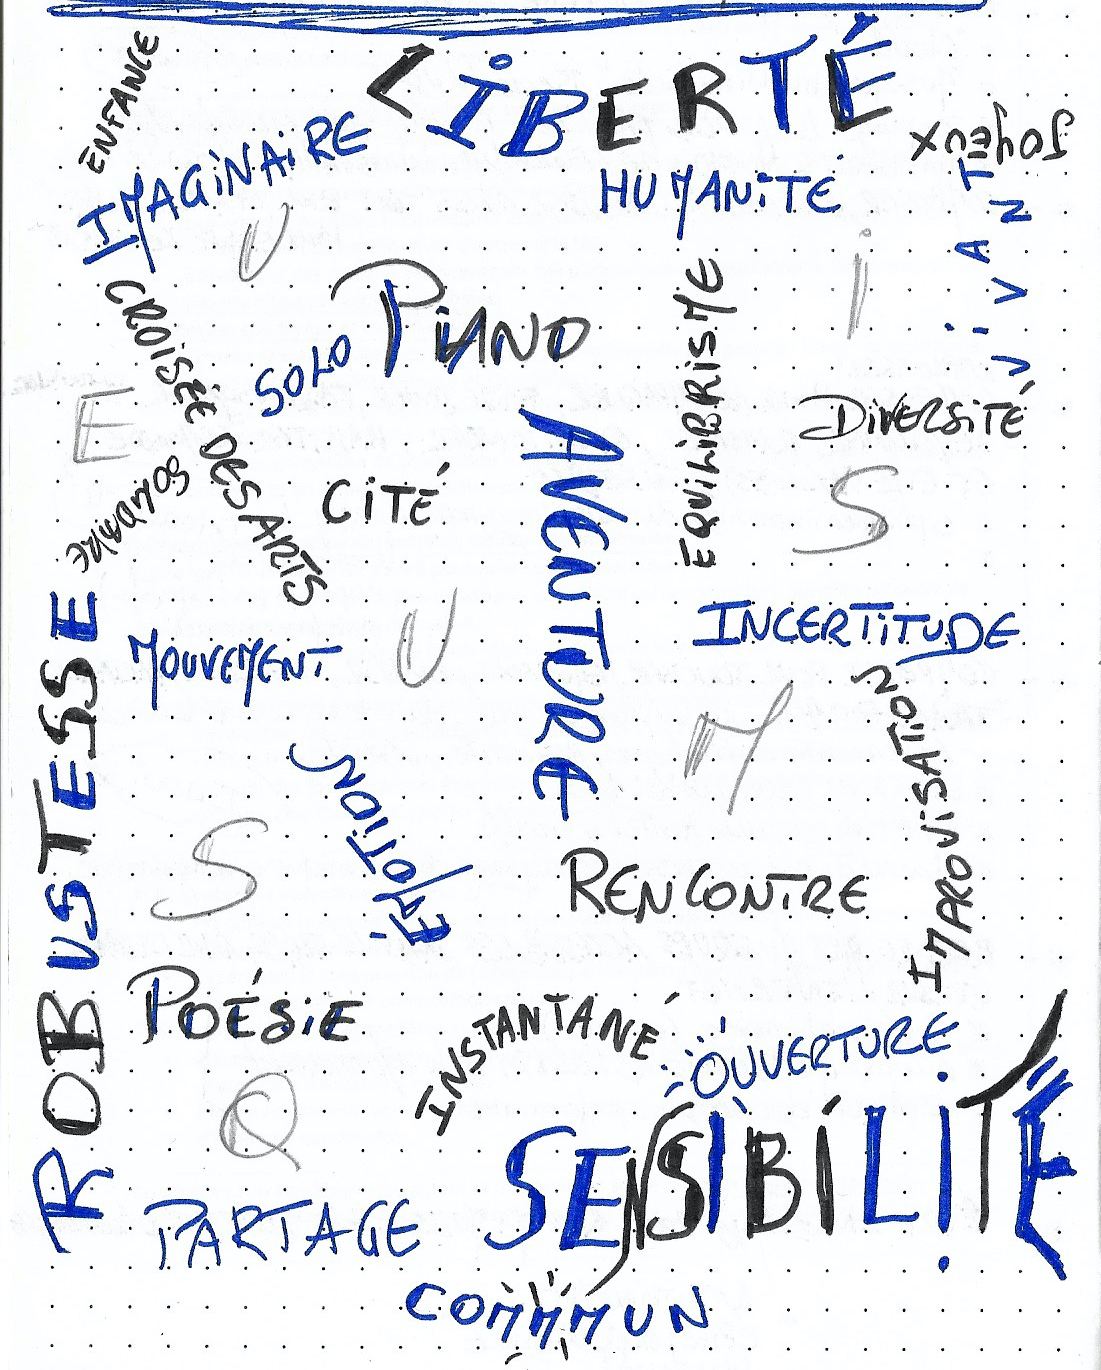 ENFANCE
LIBERTÉ
Joyeux
IMAGINAIRE
HUMANITÉ
ViVANT
U
i
CROISÉE DES ARTS
SOLO PIANO
EQUILIBRISME
E
DIVERSITÉ
AVENTURE
SOLIDAIRE
CITÉ
S
ROBUSTESSE
MOUVEMENT
U
INCERTITUDE
M
IMPROVISATION
ÉMOTION
S
RENCONTRE
POÉSIE
INSTANTANÉ
OUVERTURE
Q
SENSIBILITÉ
PARTAGE
COMMMUN